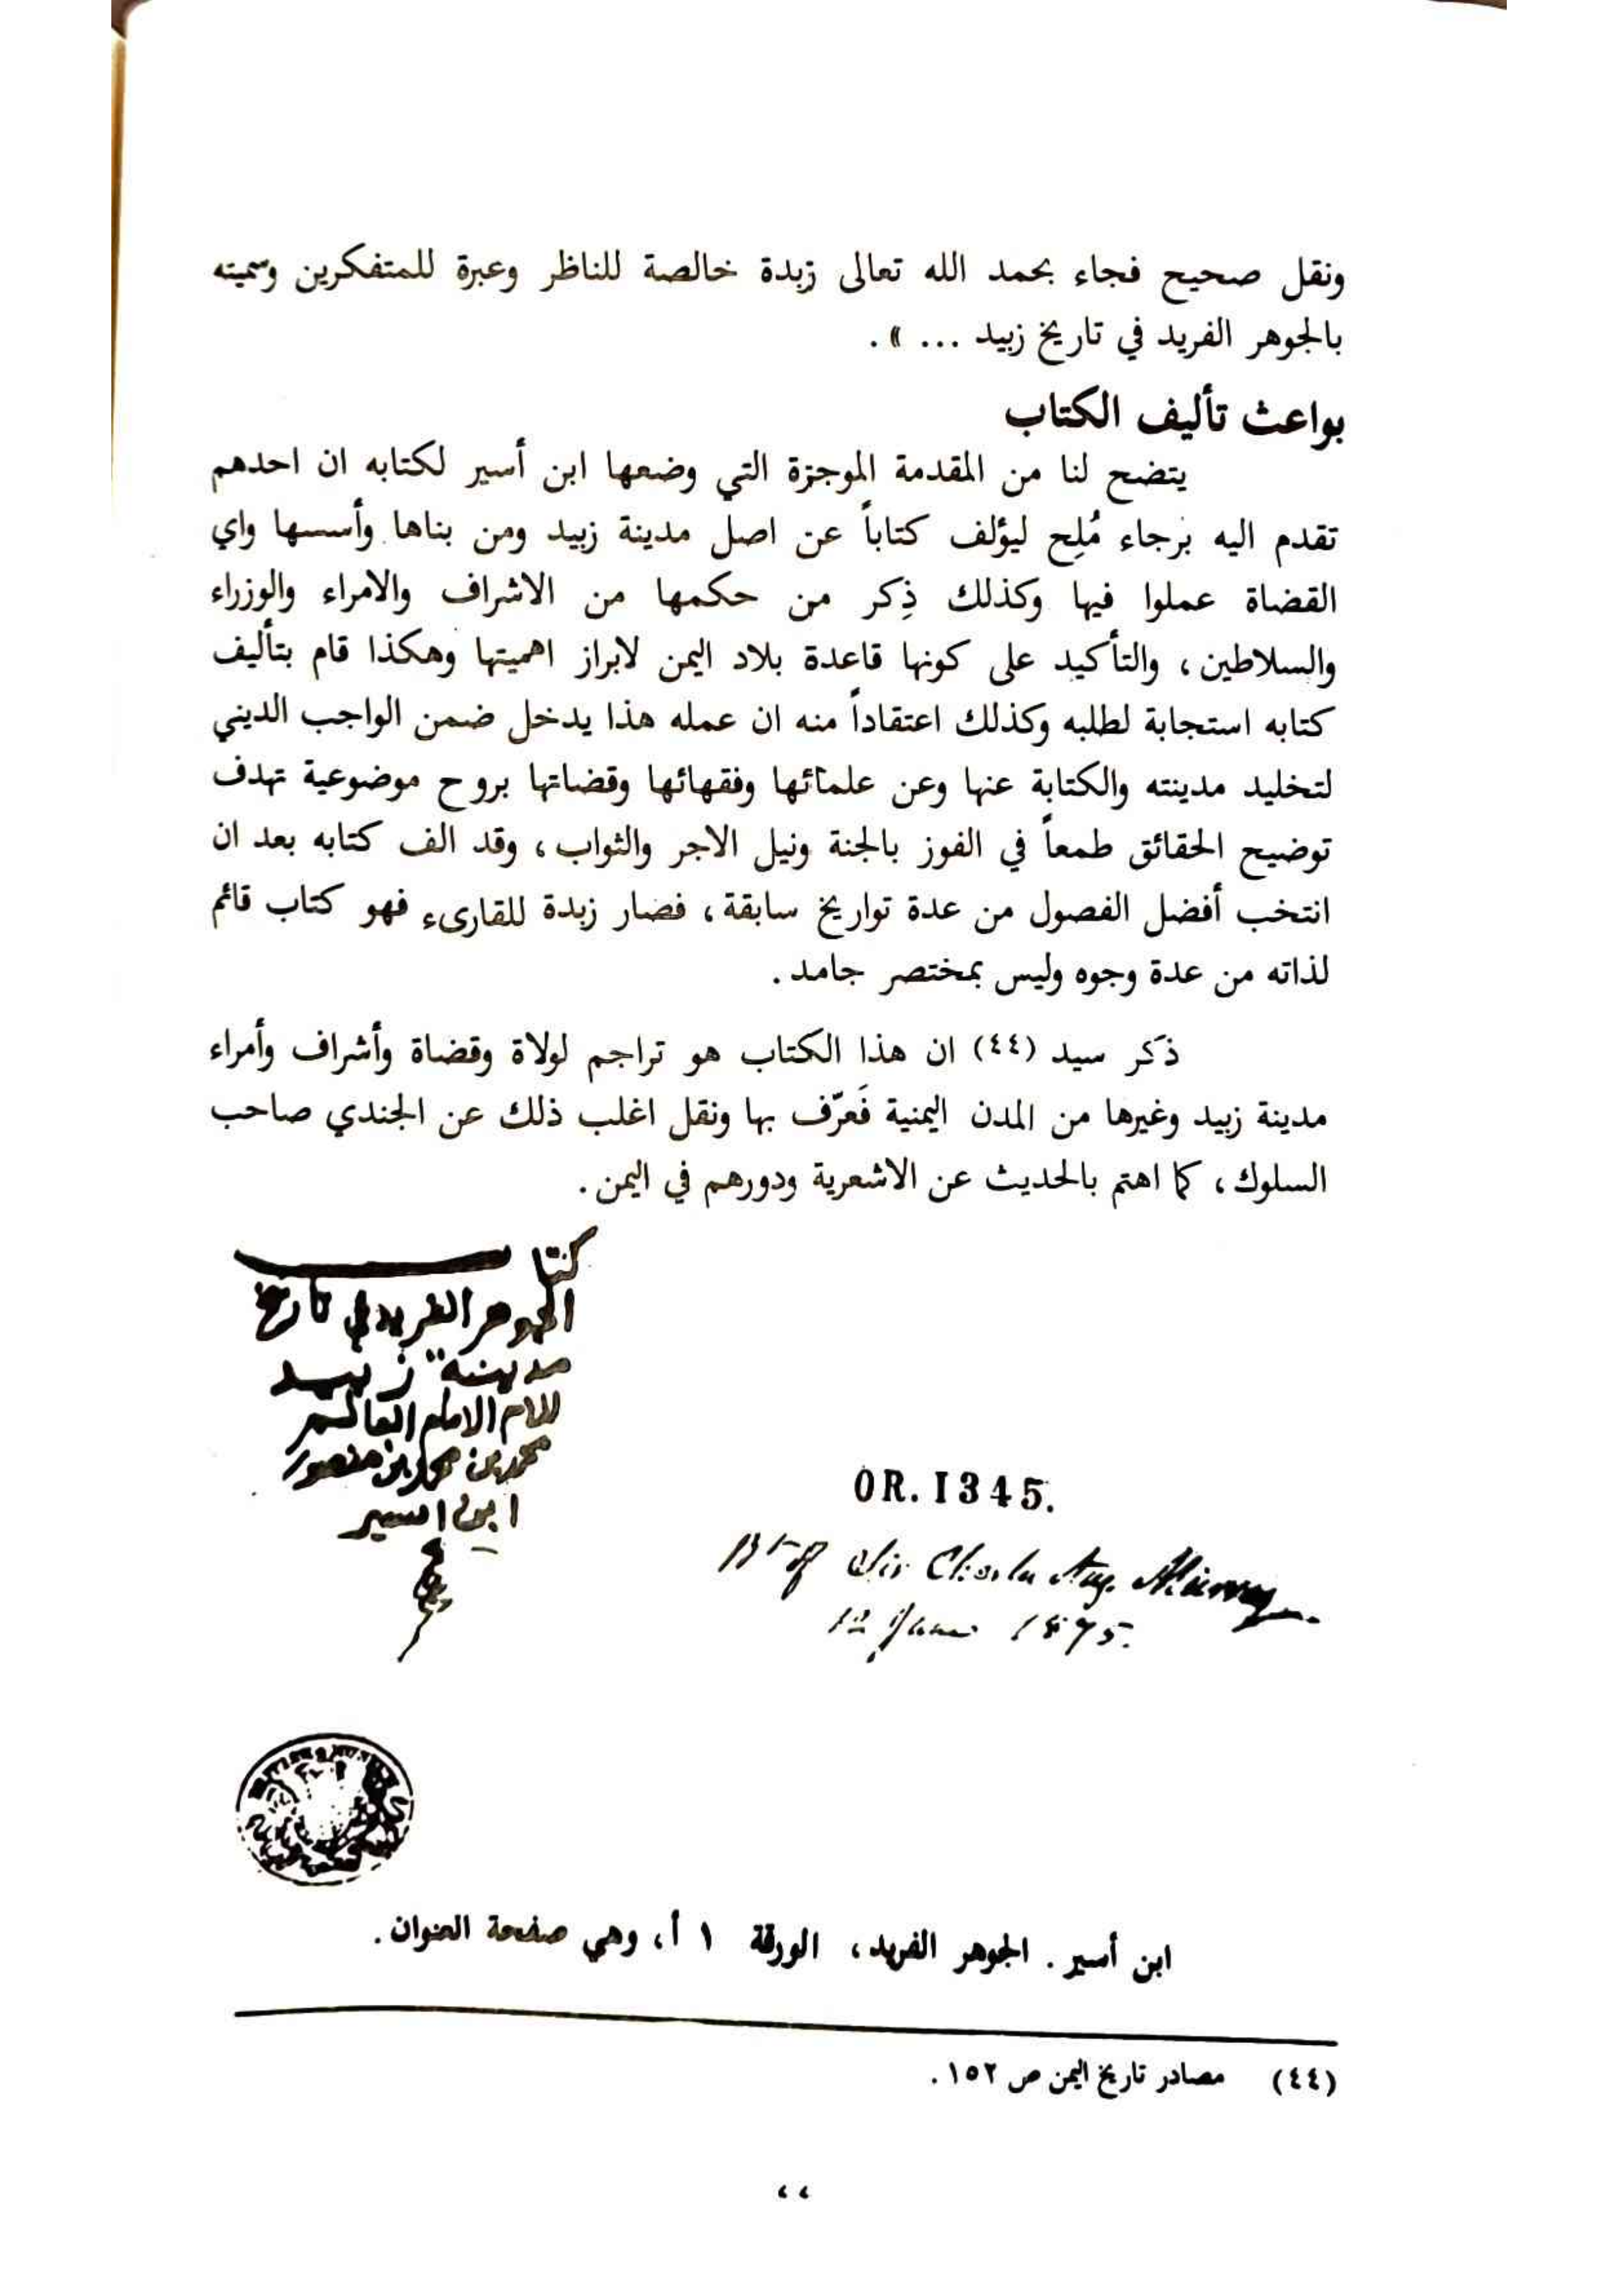 ونقل صحيح فجاء بحمد الله تعالى زبدة خالصة للناظر وعبرة للمتفكرين وسميته
بالجوهر الفريد في تاريخ زبيد ... » .
بواعث تأليف الكتاب
يتضح لنا من المقدمة الموجزة التي وضعها ابن أسير لكتابه ان احدهم
تقدم اليه برجاء مُلِح ليؤلف كتاباً عن اصل مدينة زبيد ومن بناها وأسسها واي
القضاة عملوا فيها وكذلك ذِكر من حكمها من الاشراف والامراء والوزراء
والسلاطين ، والتأكيد على كونها قاعدة بلاد اليمن لابراز اهميتها وهكذا قام بتأليف
كتابه استجابة لطلبه وكذلك اعتقاداً منه ان عمله هذا يدخل ضمن الواجب الديني
لتخليد مدينته والكتابة عنها وعن علمائها وفقهائها وقضاتها بروح موضوعية تهدف
توضيح الحقائق طمعاً في الفوز بالجنة ونيل الاجر والثواب ، وقد الف كتابه بعد ان
انتخب أفضل الفصول من عدة تواريخ سابقة ، فصار زبدة للقارىء فهو كتاب قائم
لذاته من عدة وجوه وليس بمختصر جامد .
ذكر سيد (٤٤) ان هذا الكتاب هو تراجم لولاة وقضاة وأشراف وأمراء
مدينة زبيد وغيرها من المدن اليمنية فَعرّف بها ونقل اغلب ذلك عن الجندي صاحب
السلوك ، كما اهتم بالحديث عن الاشعرية ودورهم في اليمن .
كتاب
الجوهر الفريد في تاريخ
مدينة زبيد
الامام العالم
محمد بن محمد بن منصور
ابن اسير
OR. I345.
of Sir Charles Aug. Murray
12 June 1875.
ابن أسير . الجوهر الفريد ، الورقة ١ أ ، وهي صفحة العنوان .
(٤٤) مصادر تاريخ اليمن ص ١٥٢ .